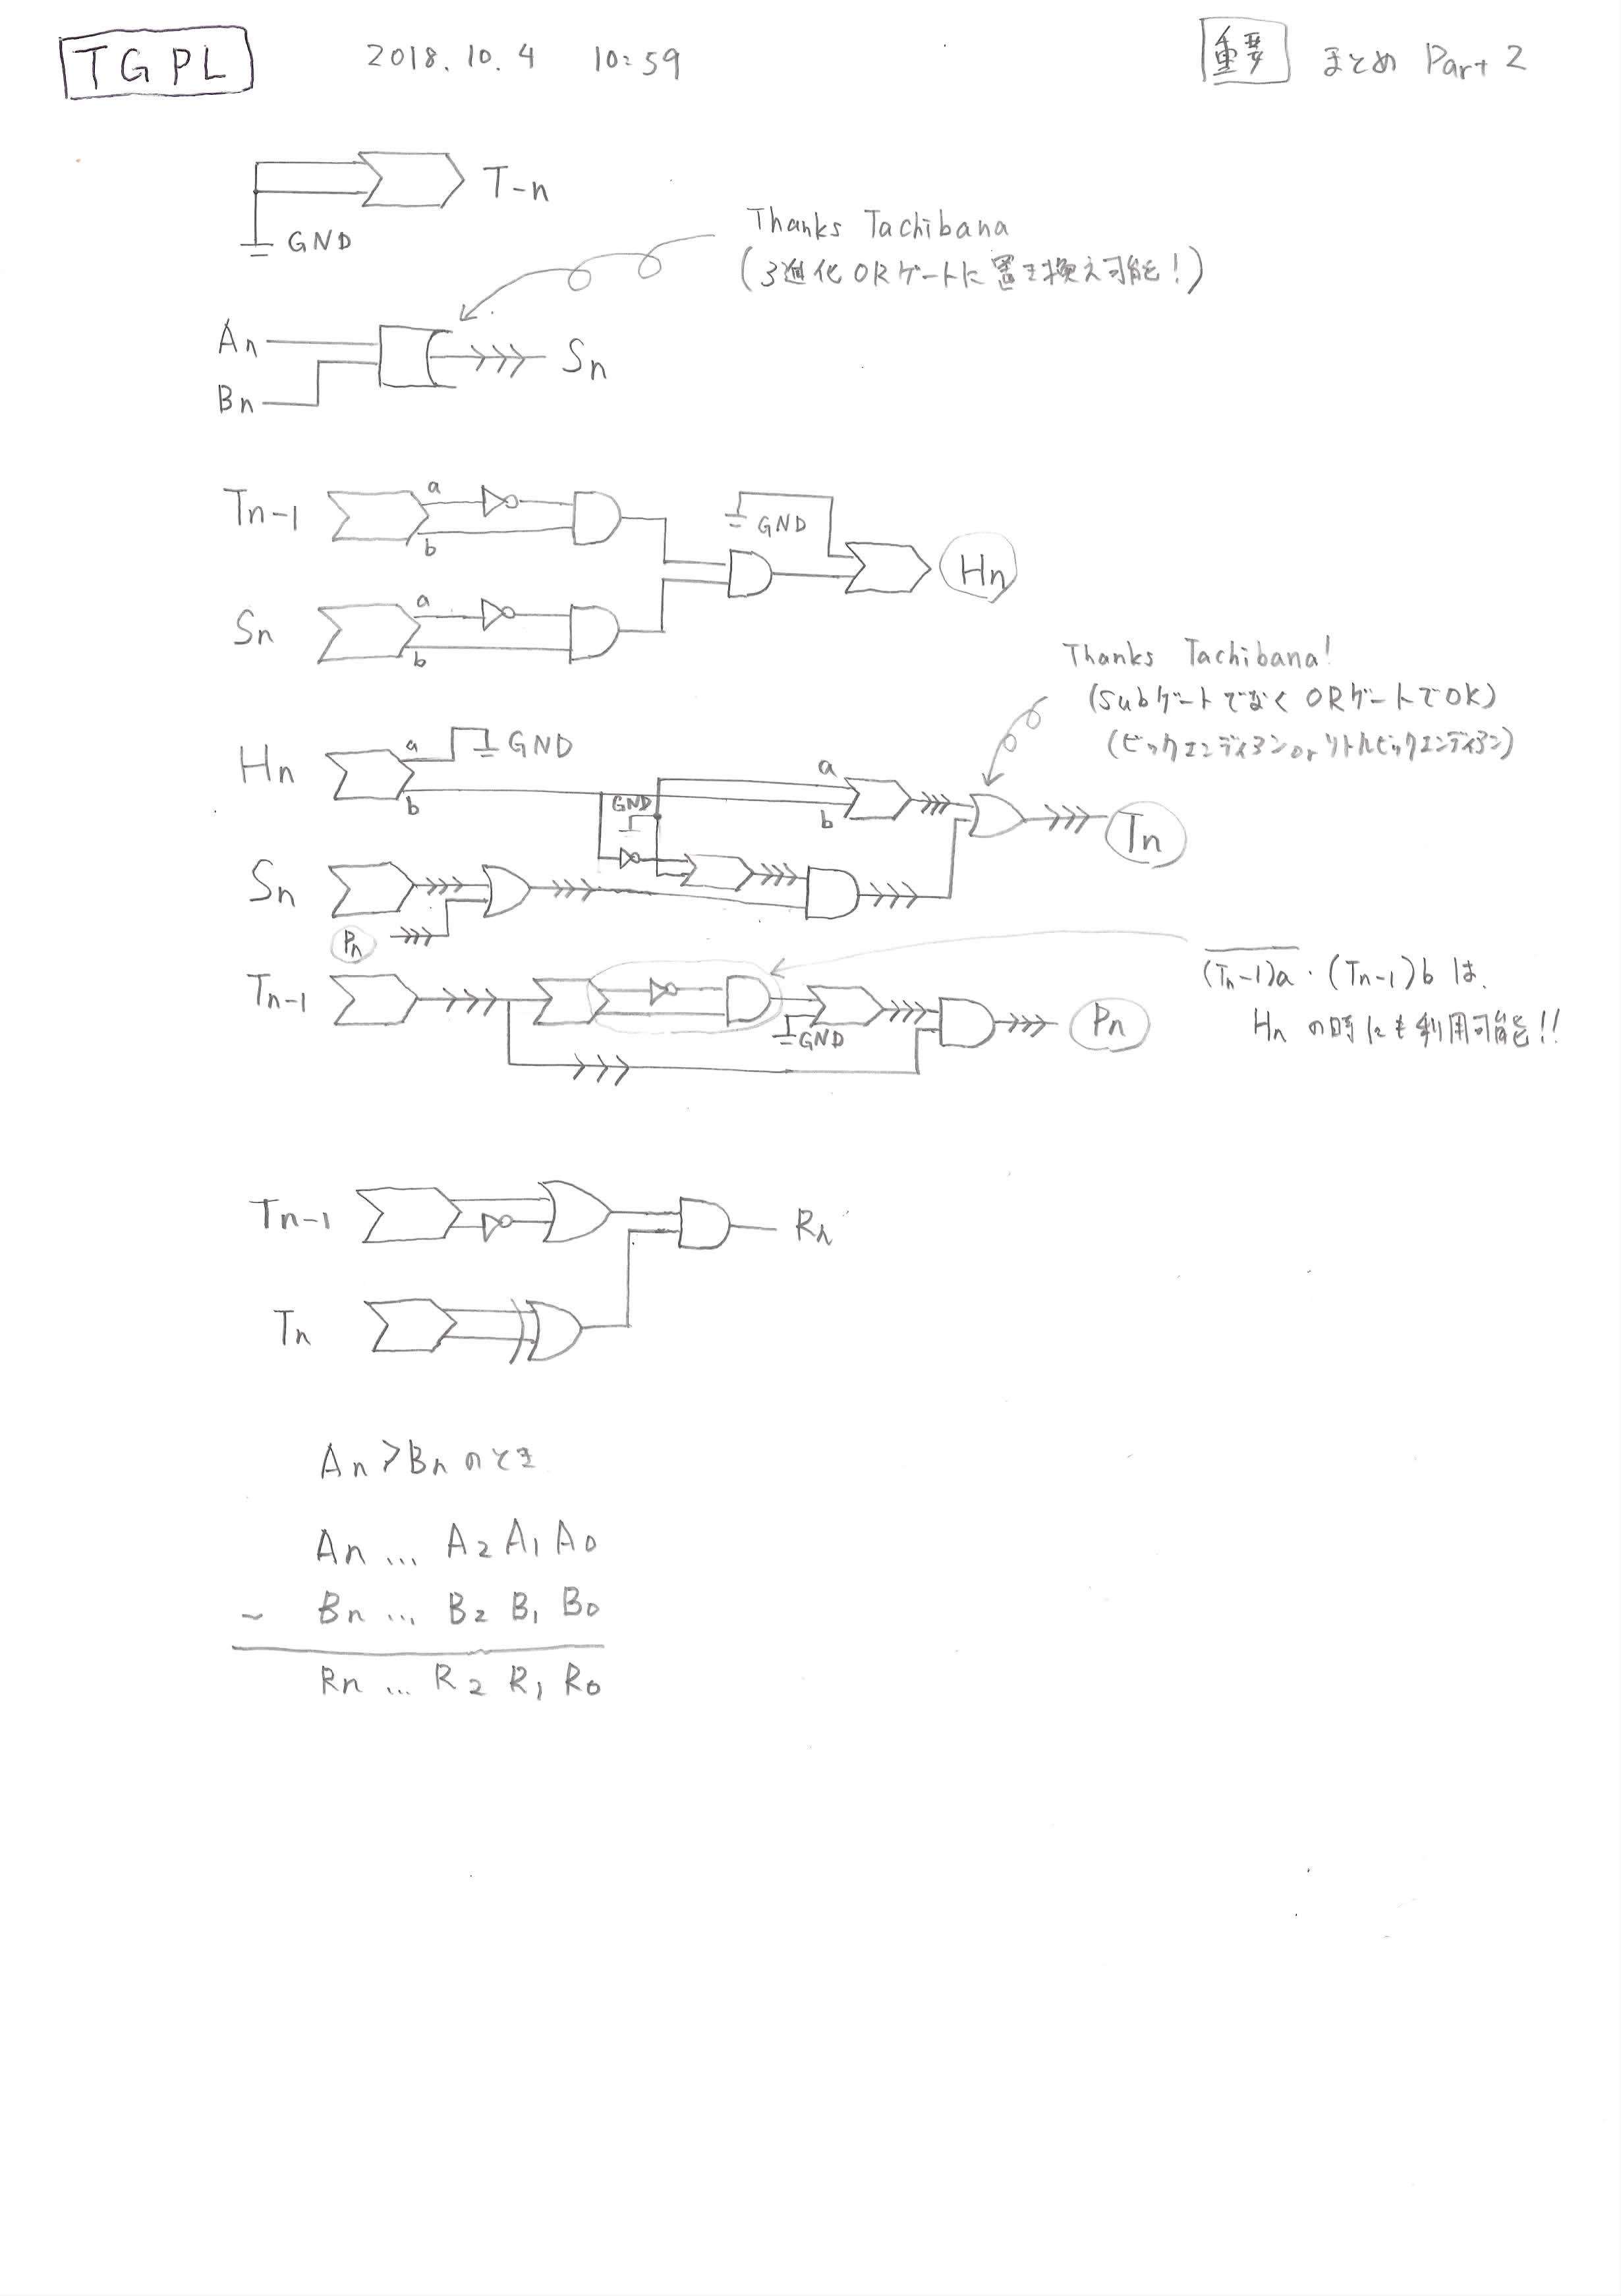 TGPL 2018.10.4 10:59 重要 まとめ Part 2
T-n
GND
Thanks Tachibana
(3進化ORゲートに置き換え可能!)
An
Bn
Sn
Tn-1 a
b
GND
Hn
Sn a
b
Thanks Tachibana!
(SubゲートでなくORゲートでOK)
(ビックエンディアンorリトルビックエンディアン)
Hn a GND
b
GND
a
b
Tn
Sn
Pn
Tn-1
GND
Pn
(Tn-1)a・(Tn-1)b は、
Hn の時にも利用可能!!
Tn-1
Rn
Tn
An>Bnのとき
An ... A2 A1 A0
- Bn ... B2 B1 B0
Rn ... R2 R1 R0